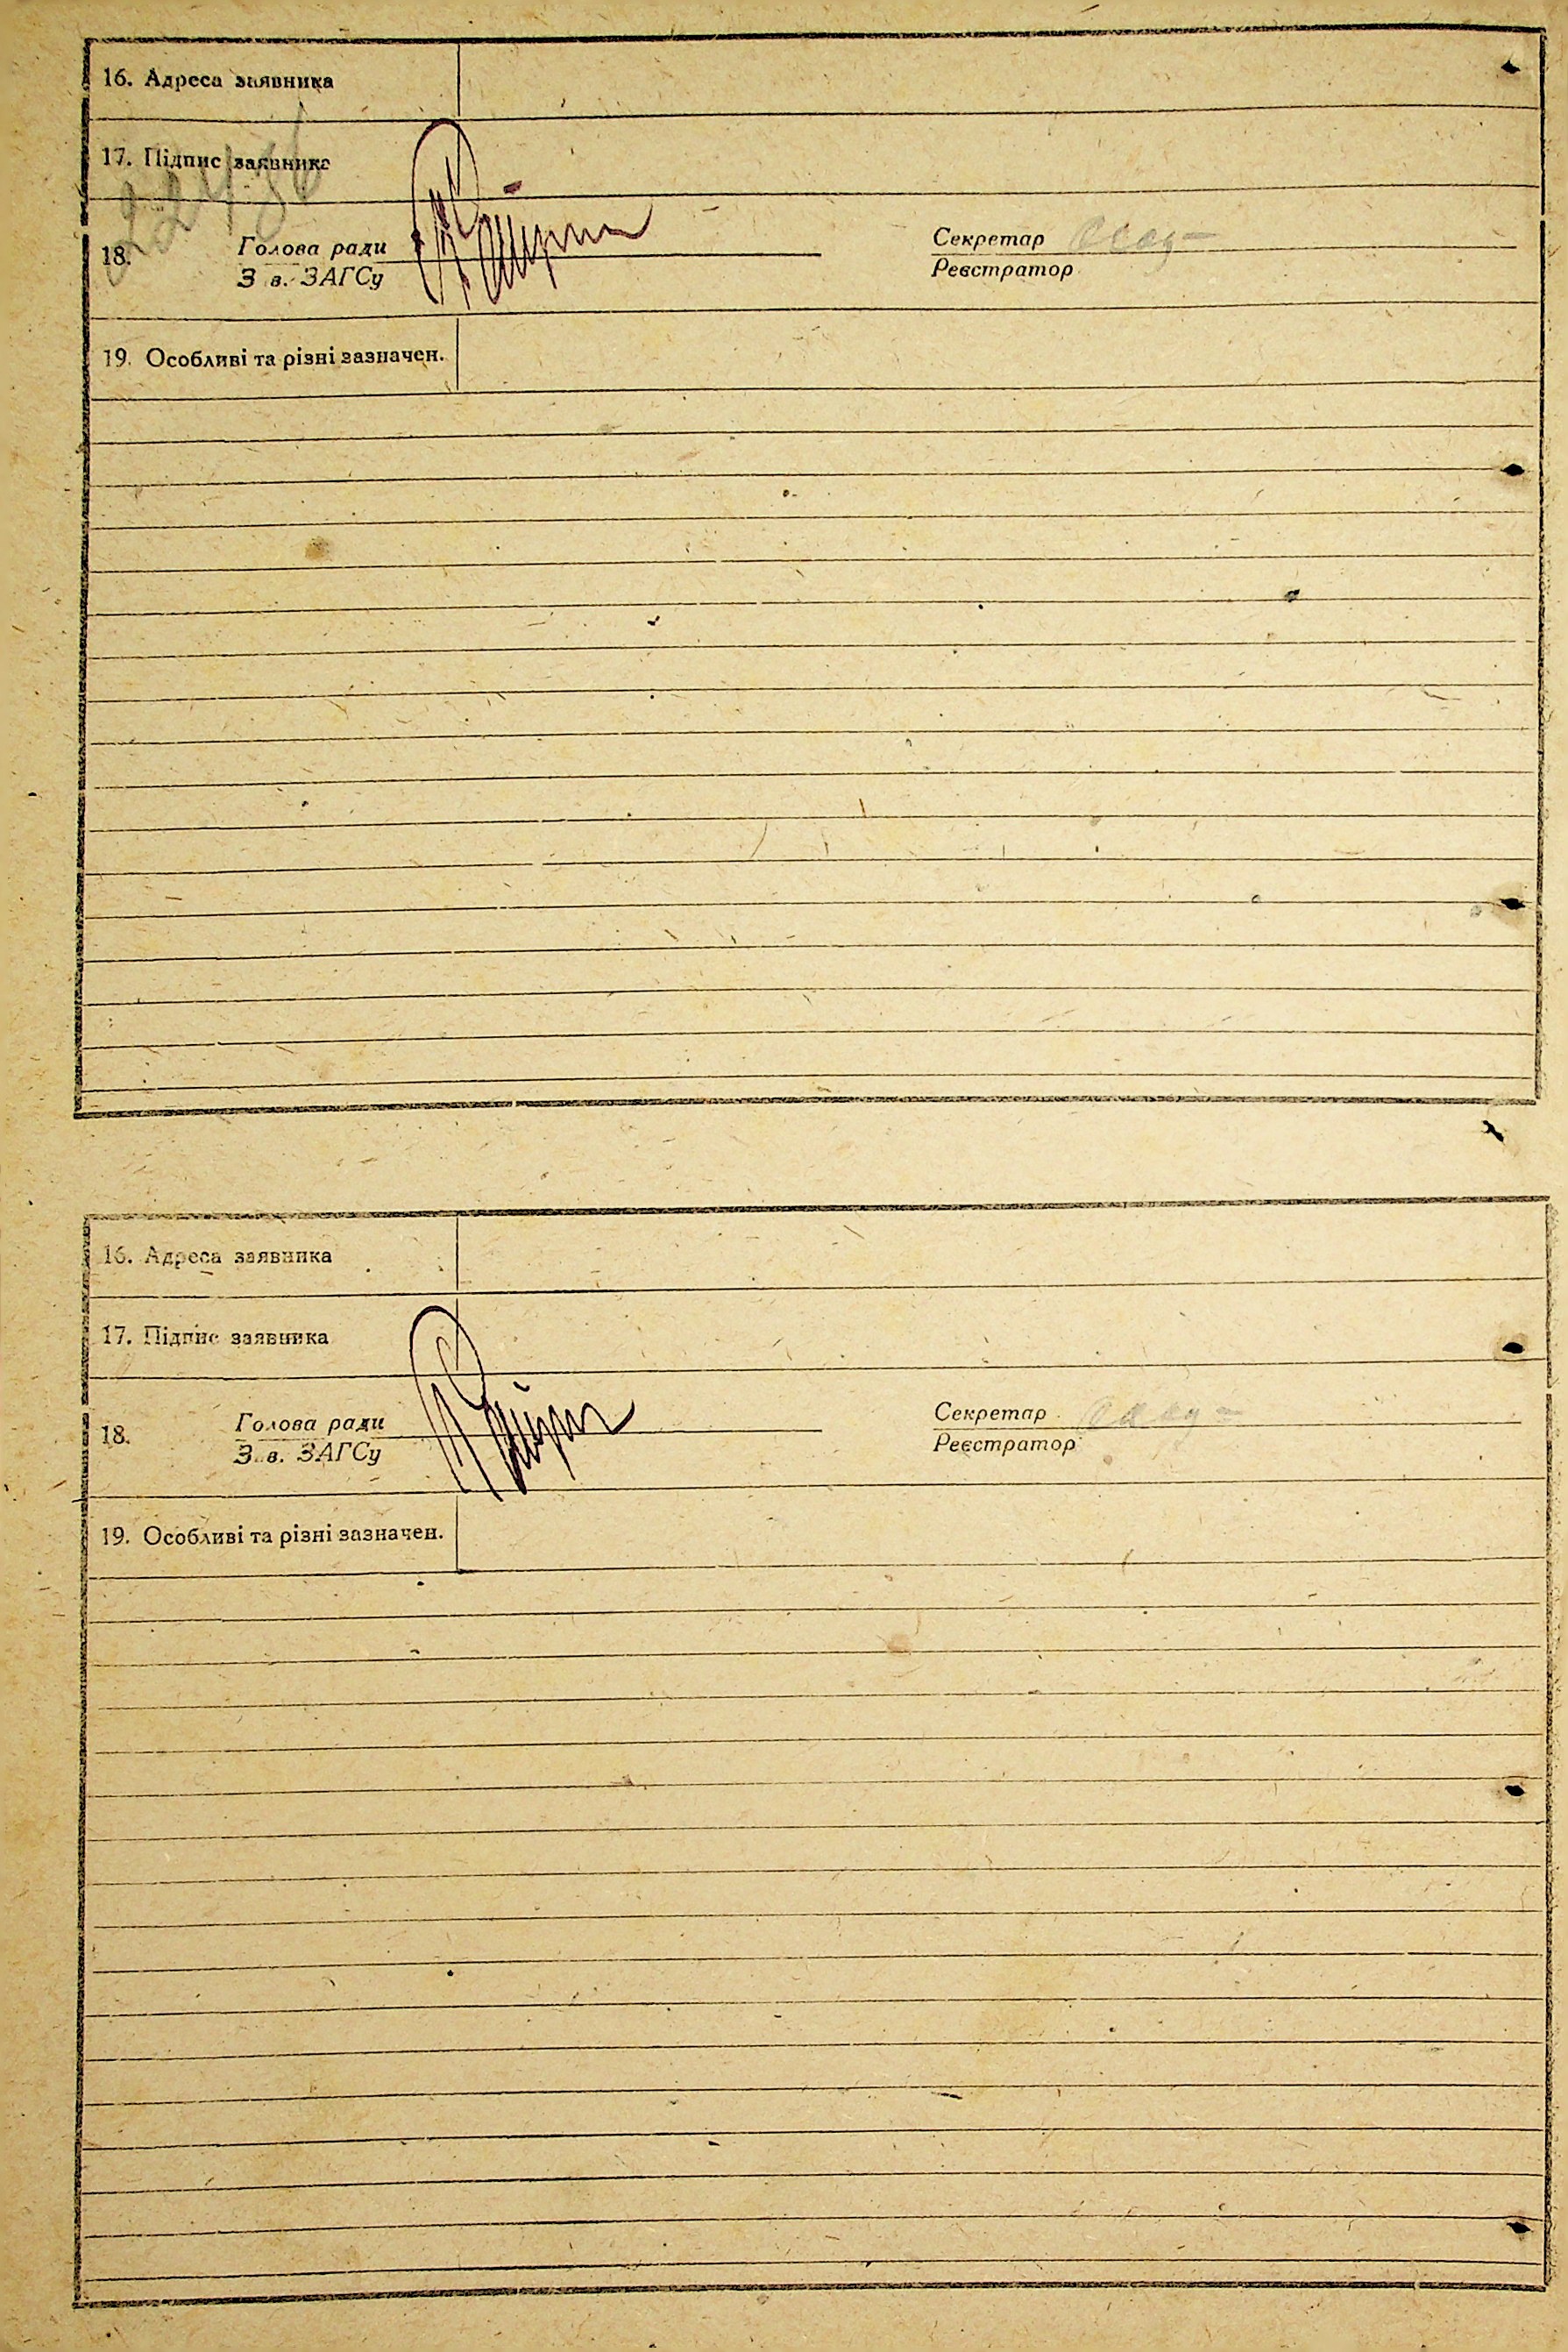 16. Адреса заявника
17. Підпис заявника
18. Голова ради
З в. ЗАГСу
Секретар
Реєстратор
19. Особливі та різні зазначен.
16. Адреса заявника
17. Підпис заявника
18. Голова ради
З в. ЗАГСу
Секретар
Реєстратор
19. Особливі та різні зазначен.